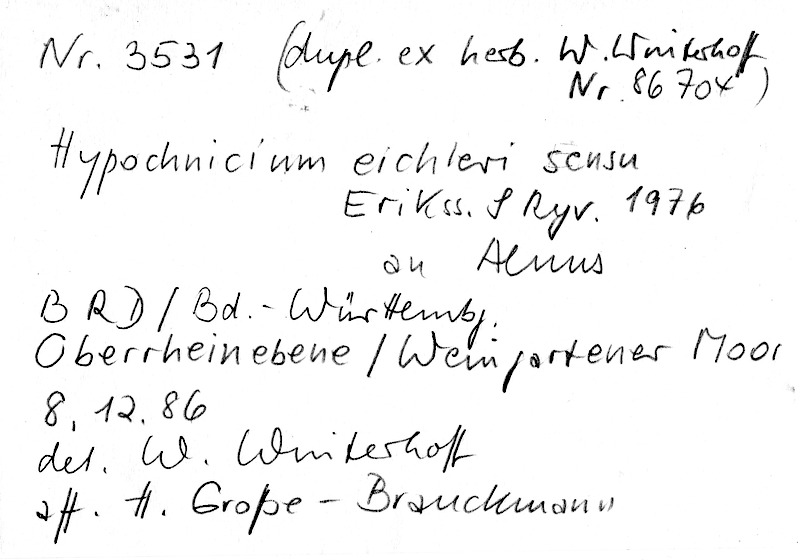 Nr. 3531 (dupl. ex herb. W. Winterhoff
Nr. 86704)
Hypochnicium eichleri sensu
Erikss. & Ryv. 1976
an Alnus
BRD / Bd.-Württembg.
Oberrheinebene / Weingartener Moor
8.12.86
det. W. Winterhoff
aff. H. Große-Brauckmann